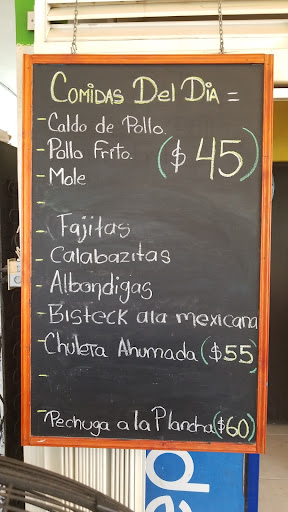 Comidas Del Dia =
- Caldo de Pollo.
- Pollo Frito. ($45)
- Mole
-
- Fajitas
- Calabazitas
- Albondigas
- Bisteck ala mexicana
- Chuleta Ahumada ($55)
-
-
Pechuga a la Plancha ($60)
da